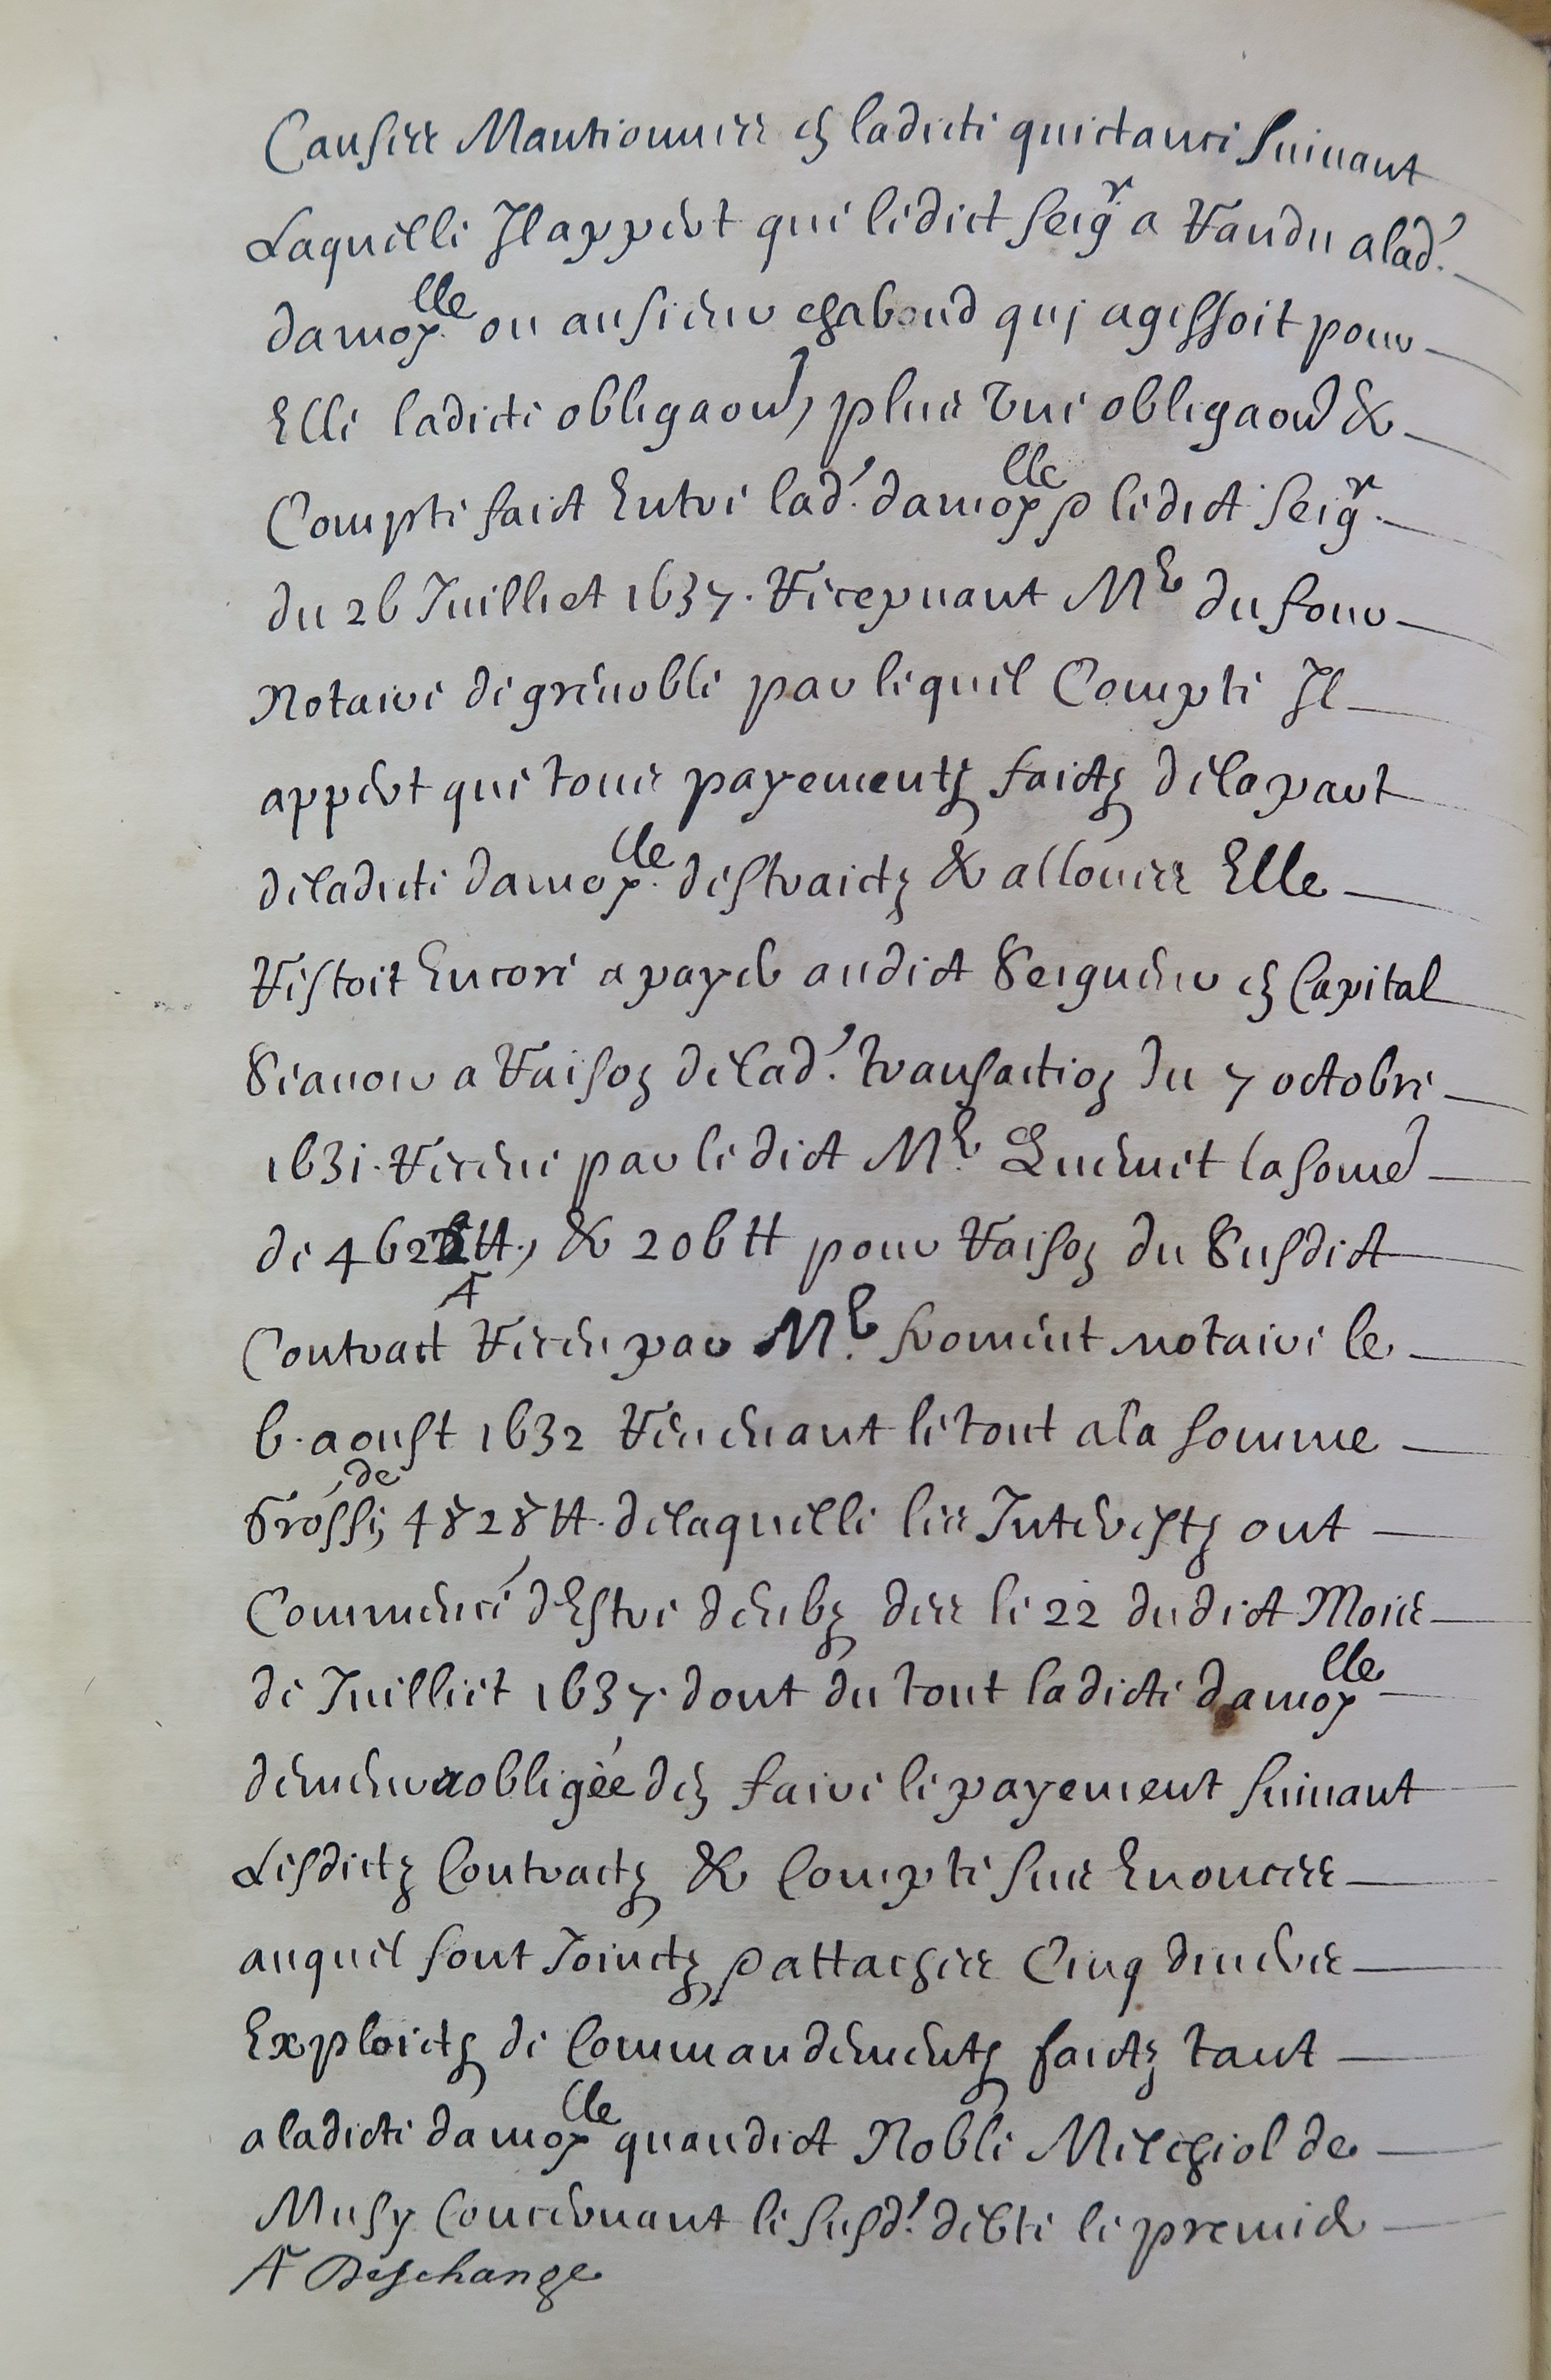 Causees Mantionnees en ladicte quictance suiuant
Laquelle Il appert que ledict seigr. a Randu a lad.
damoylle. ou au sieur chaboud quj agissoit pour
Elle ladicte obligaon, plus vne obligaon &
Compte faict Entre lad. damoylle & ledict seigr.
du 26 Juilliet 1637. Recepuant Me du four
Notaire de grenoble par lequel Compte Il
appert que tous payements faictz de la part
de ladicte damoylle. destraictz & allouees Elle
Restoit Encore a payer audict Seigneur en Capital
Scauoir a Raison de lad. transaction du 7 octobre
1631. Receue par ledict Me. la some
de 462 ₶, & 206 ₶ pour Raison du Susdict
Contract A Receu par Me. froment notaire le
6. aoust 1632 Reuenant le tout a la somme
Grosse, de 4828 ₶. de laquelle les Interestz ont
Commencé dEstre deubz des le 22 dudict Mois
de Juilliet 1637. dont du tout ladicte damoylle
demeura obligée den faire le payement suiuant
Lesdictz Contractz & Compte sus Enoncees
auquel sont Joinctz & attachees Cinq diuers
Exploictz de Commandementz faictz tant
a ladicte damoylle quaudict Noble Melchiol de
Musy Concernant le susd. debte le premier
A Deschange